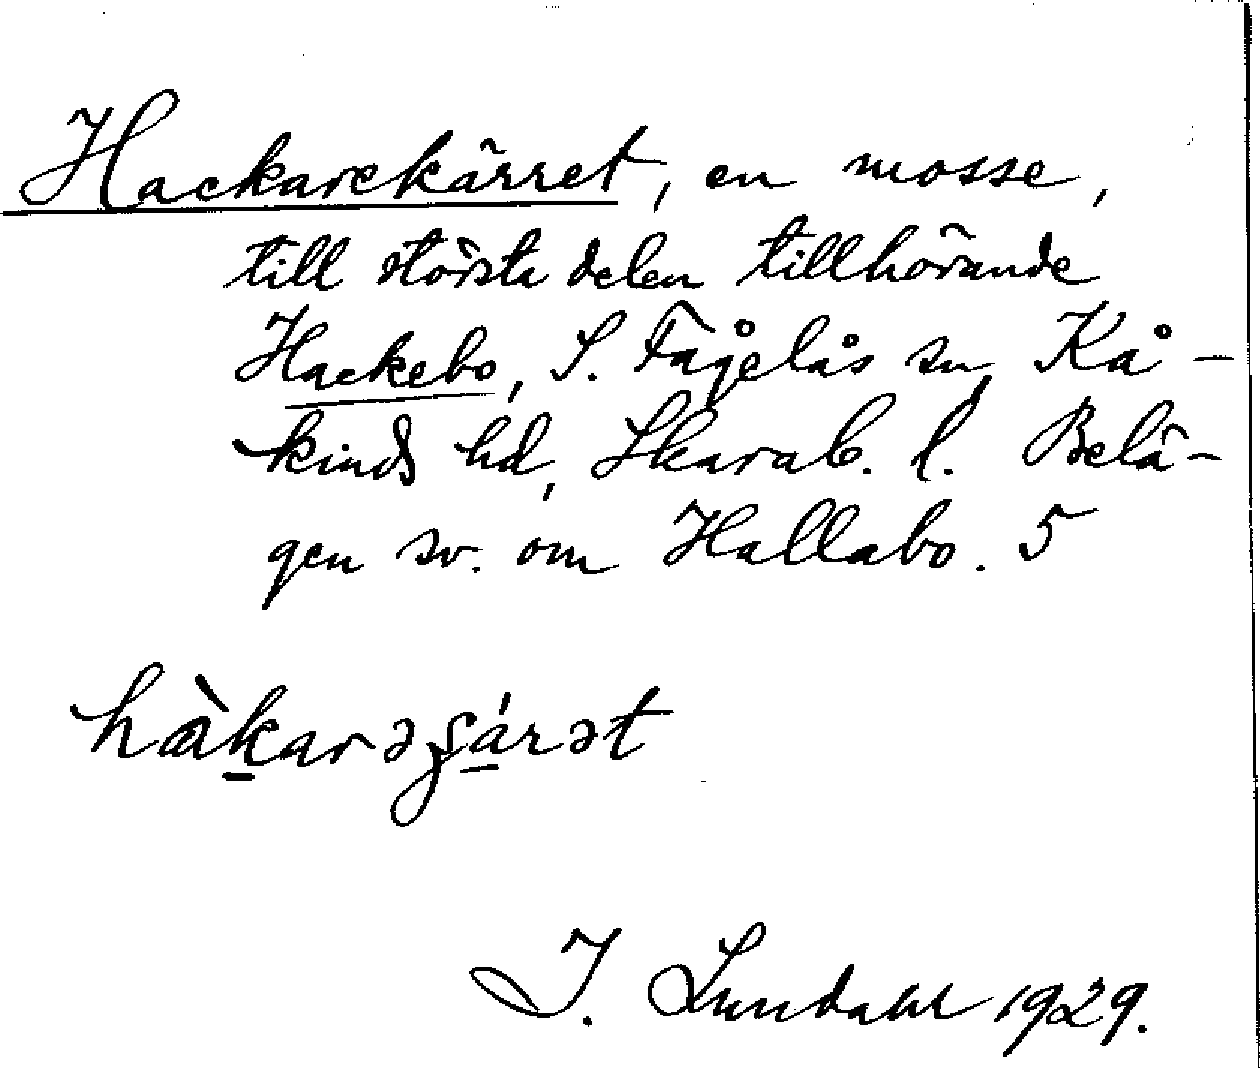 Hackarekärret, en mosse,
till största delen tillhörande
Hackebo, S. Fågelås sn, Kå-
kinds hd, Skarab. l. Belä-
gen sv. om Hallabo. 5
hàkarəʃárət
I. Lundahl 1929.